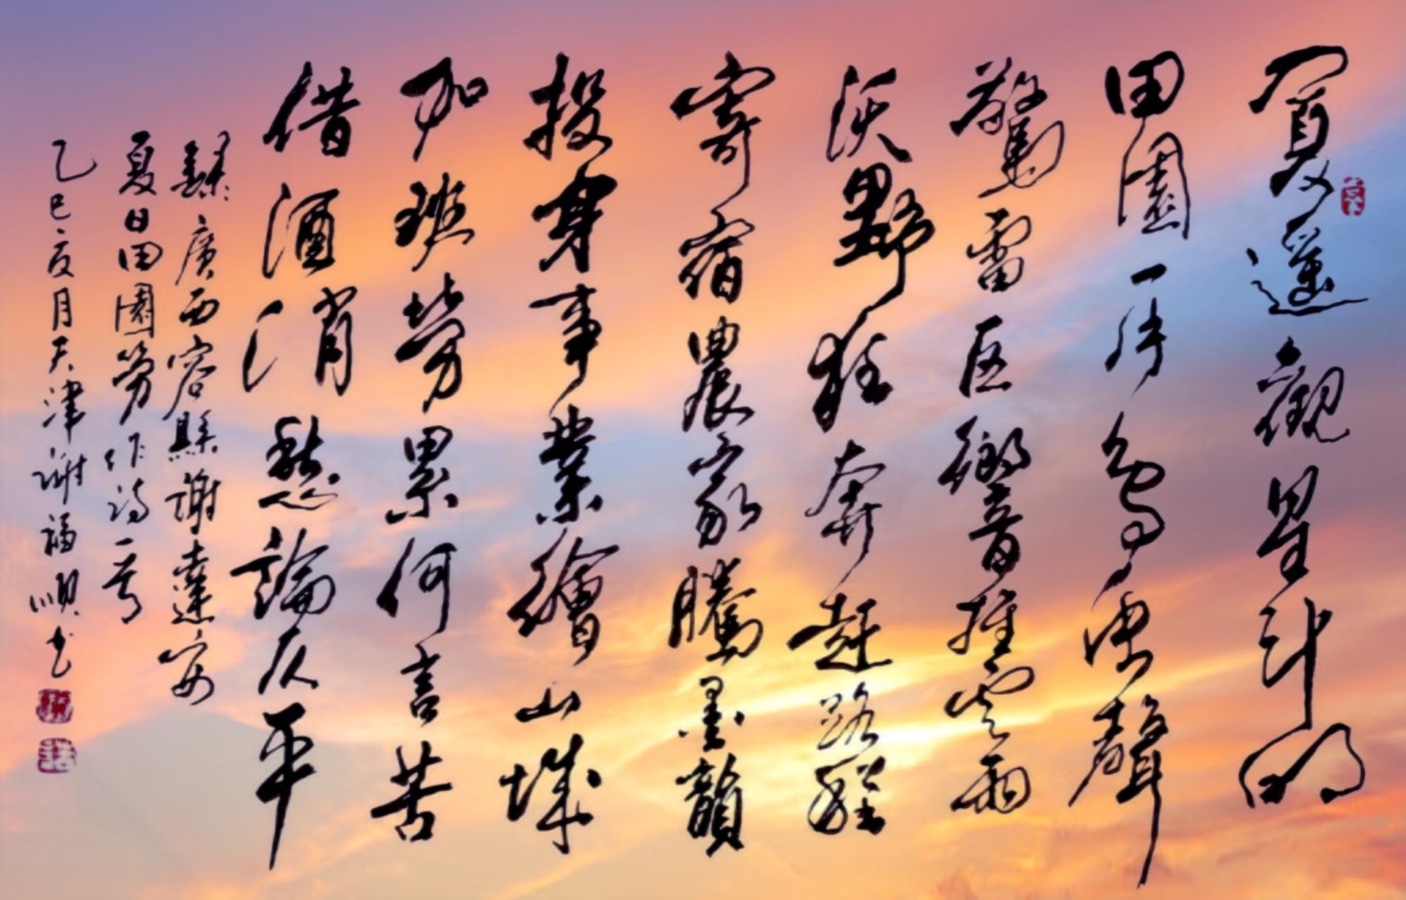 夏遥觀星斗明
田園一片鳥虫聲
驚雷巨響摧雲雨
沃野狂奔赶路程
寄宿農家騰墨韻
投身事業繪山城
加班勞累何言苦
借酒消愁論仄平
錄廣西容縣謝達安
夏日田園勞作詩一首
乙巳夏月天津謝福順书